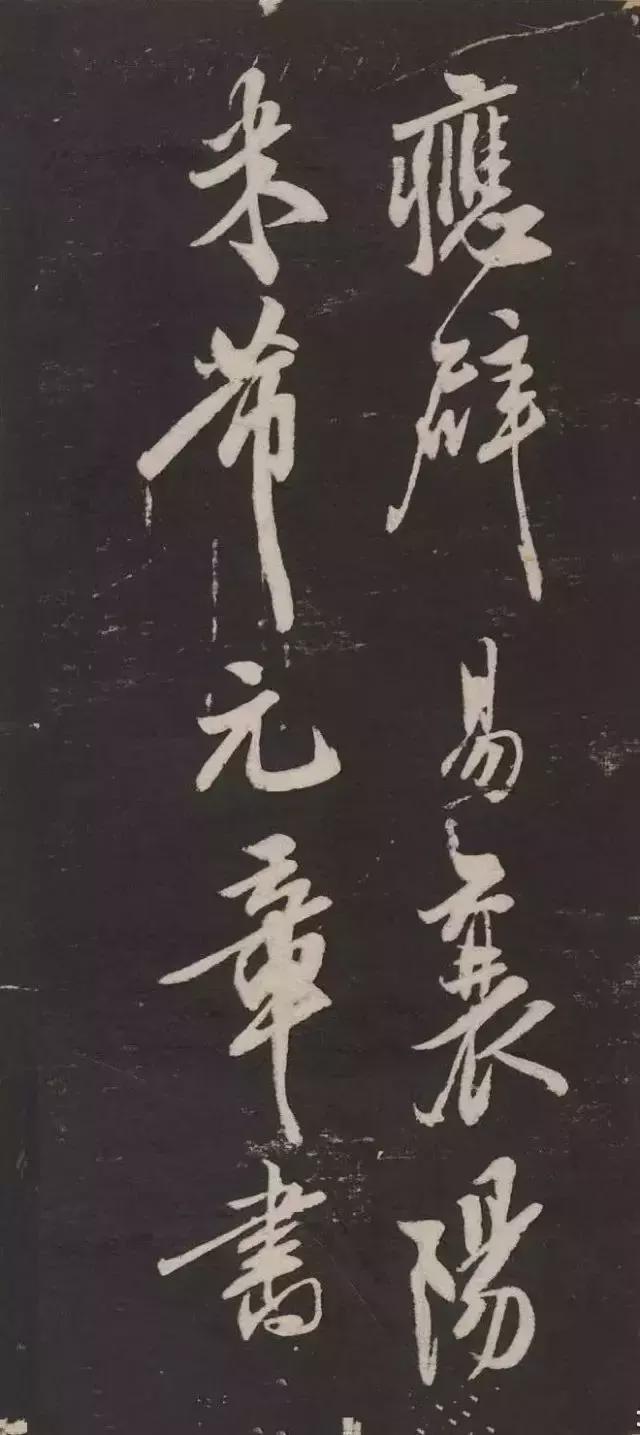 應辟易襄陽
米芾元章書